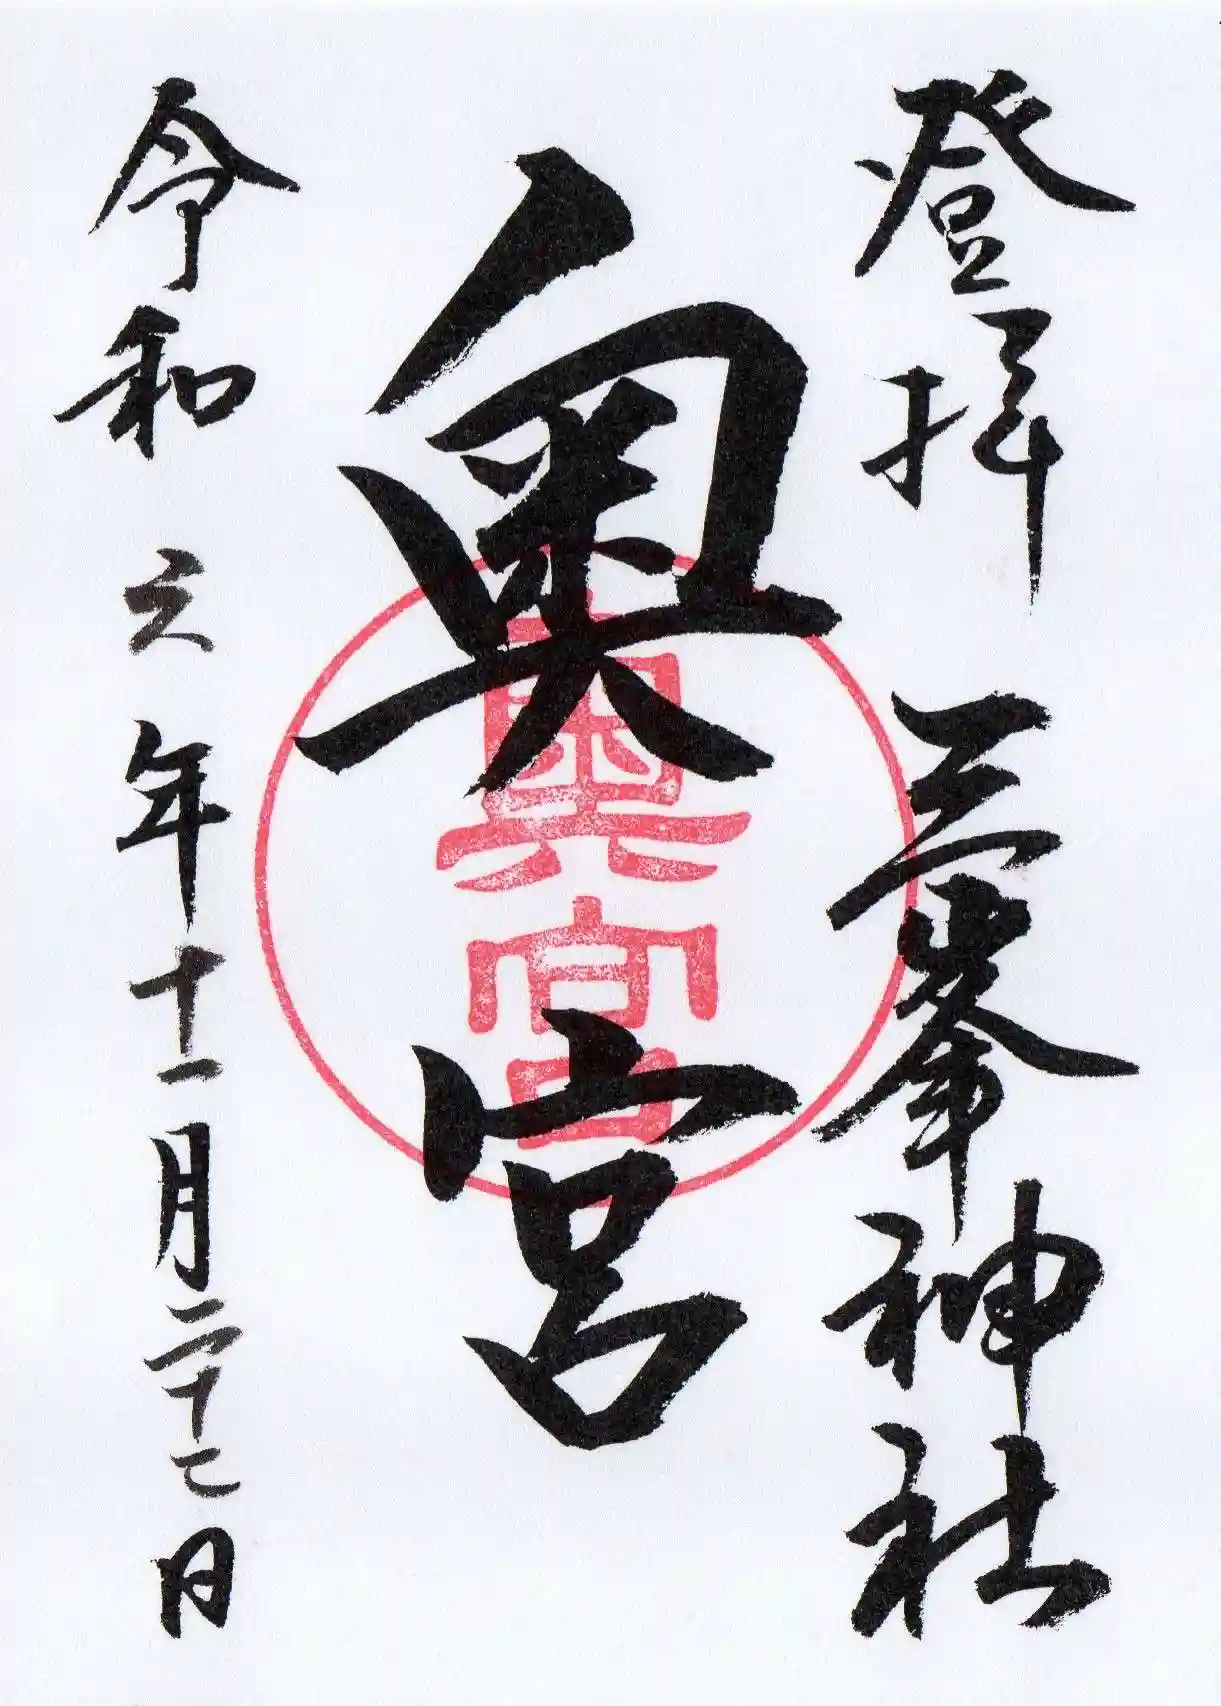 登拝 三峯神社
奥宮
奥宮
令和六年十一月二十二日